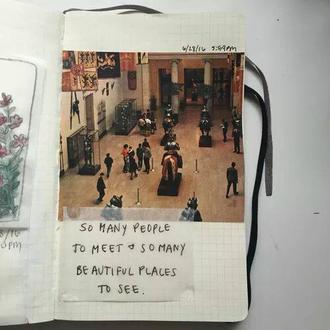 6/28/16 5:59PM
SO MANY PEOPLE
TO MEET & SO MANY
BEAUTIFUL PLACES
TO SEE.